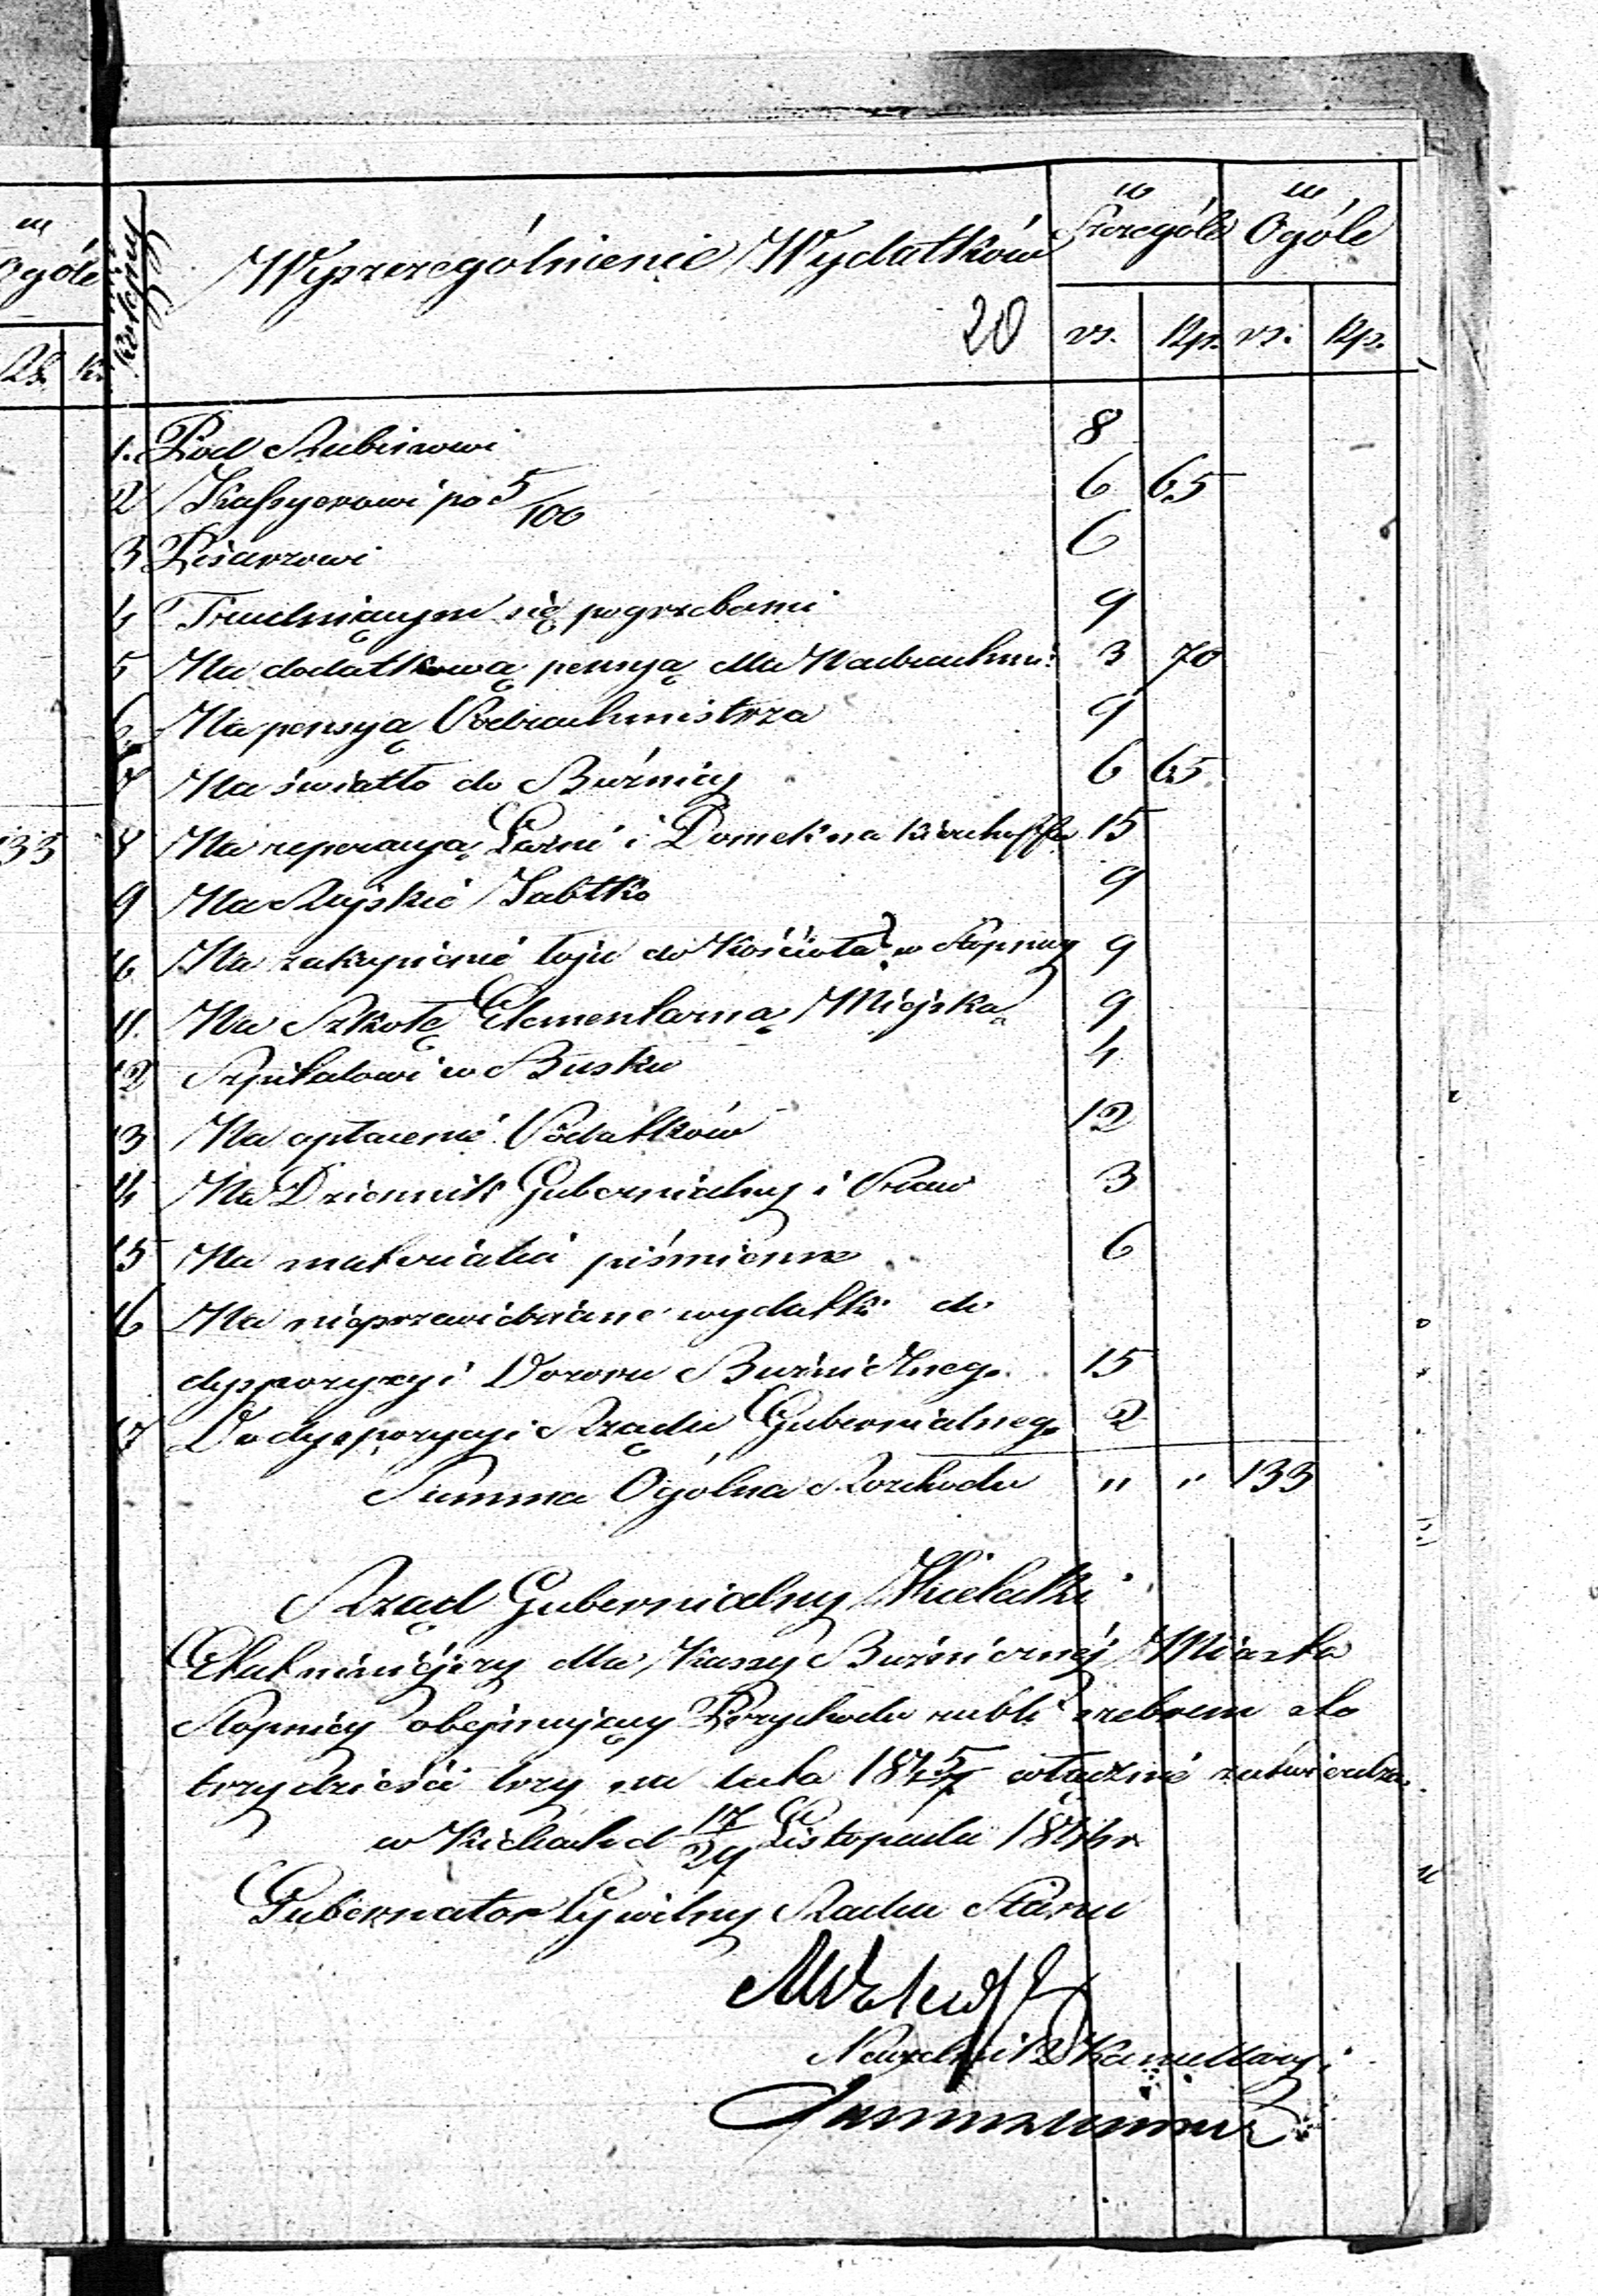 w
Ogóle
Rs. k.
133
Kolejny
Wyszczególnienie Wydatków
w Szczególe
w Ogóle
20
rs. kp. rs. kp.
1. Pod Rabinowi 8
2 Kassyerowi po 5/100 6 65
3 Pisarzowi 6
4 Trudniącym się pogrzebami 9
5 Na dodatkową pensyą dla Nadrachmi: 3 70
6 Na pensyą Podrachmistrza 9
7 Na światło do Bużnicy 6 65
8 Na reperacyą Łaźni i Domek na kirchoffie 15
9 Na Rajskie Jabłko 9
10 Na zakupienie łoju do Kościoła w Stopnicy 9
11. Na Szkołę Elementarną Miejską 9
12 Szpitalowi w Busku 4
13 Na opłacenie Podatków 12
14 Na Dziennik Gubernialny i Praw 3
15 Na materiały piśmienne 6
16 Na nieprzewidziane wydatki do
dyspozycyi Dozoru Bużniczneg. 15
17 Do dyspozycyi Rządu Gubernialneg. 2
Summa Ogólna Rozchodu " " 133
Rząd Gubernialny Kielecki
Etat niniejszy dla Kassy Bużnicznej Miasta
Stopnicy obejmujący Przychodu rubli srebrem sto
trzydzieści trzy na lata 184 5/7 włącznie zatwierdza.
w Kielcach d 17/29 Listopada 1844 r
Gubernator Cywilny Radca Stanu
Naczelnik Kancellaryi